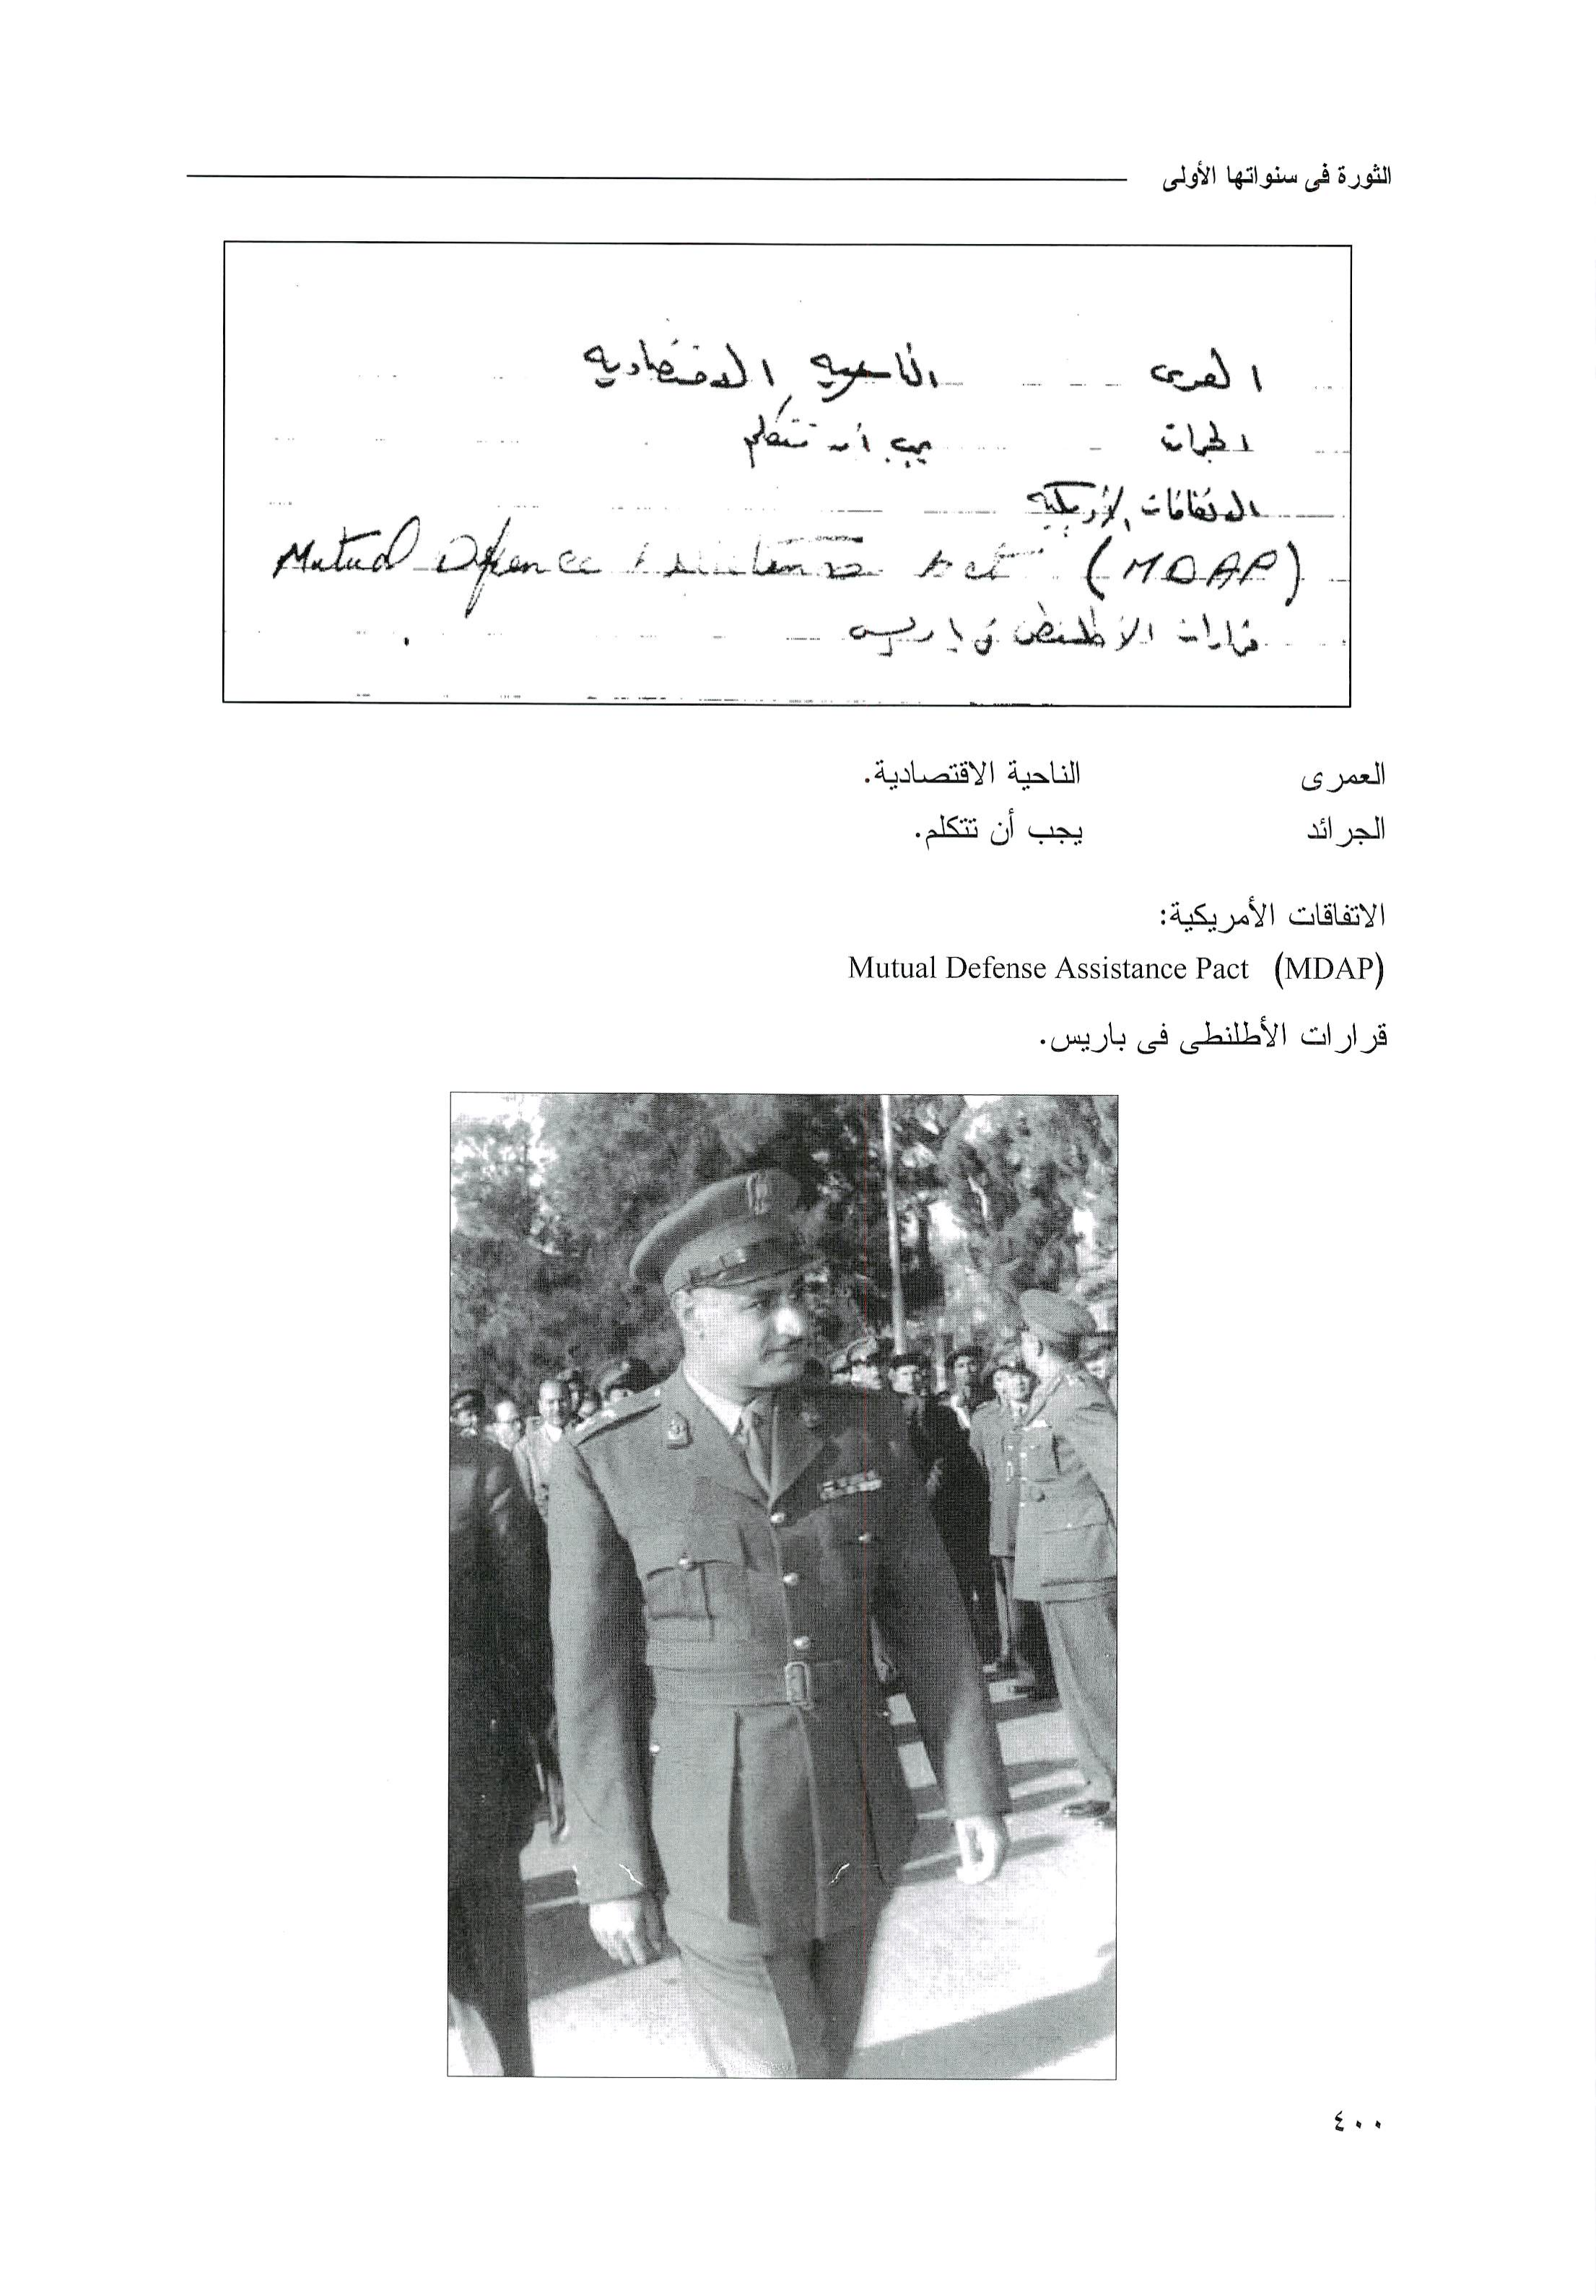 الثورة فى سنواتها الأولى
العمرى الناحية الاقتصادية
الجرائد يجب أن تتكلم
الاتفاقات الأمريكية
Mutual Defence Assistance Act (MDAP)
قرارات الأطلنطى فى باريس
العمرى الناحية الاقتصادية.
الجرائد يجب أن تتكلم.
الاتفاقات الأمريكية:
Mutual Defense Assistance Pact (MDAP)
قرارات الأطلنطى فى باريس.
٤٠٠